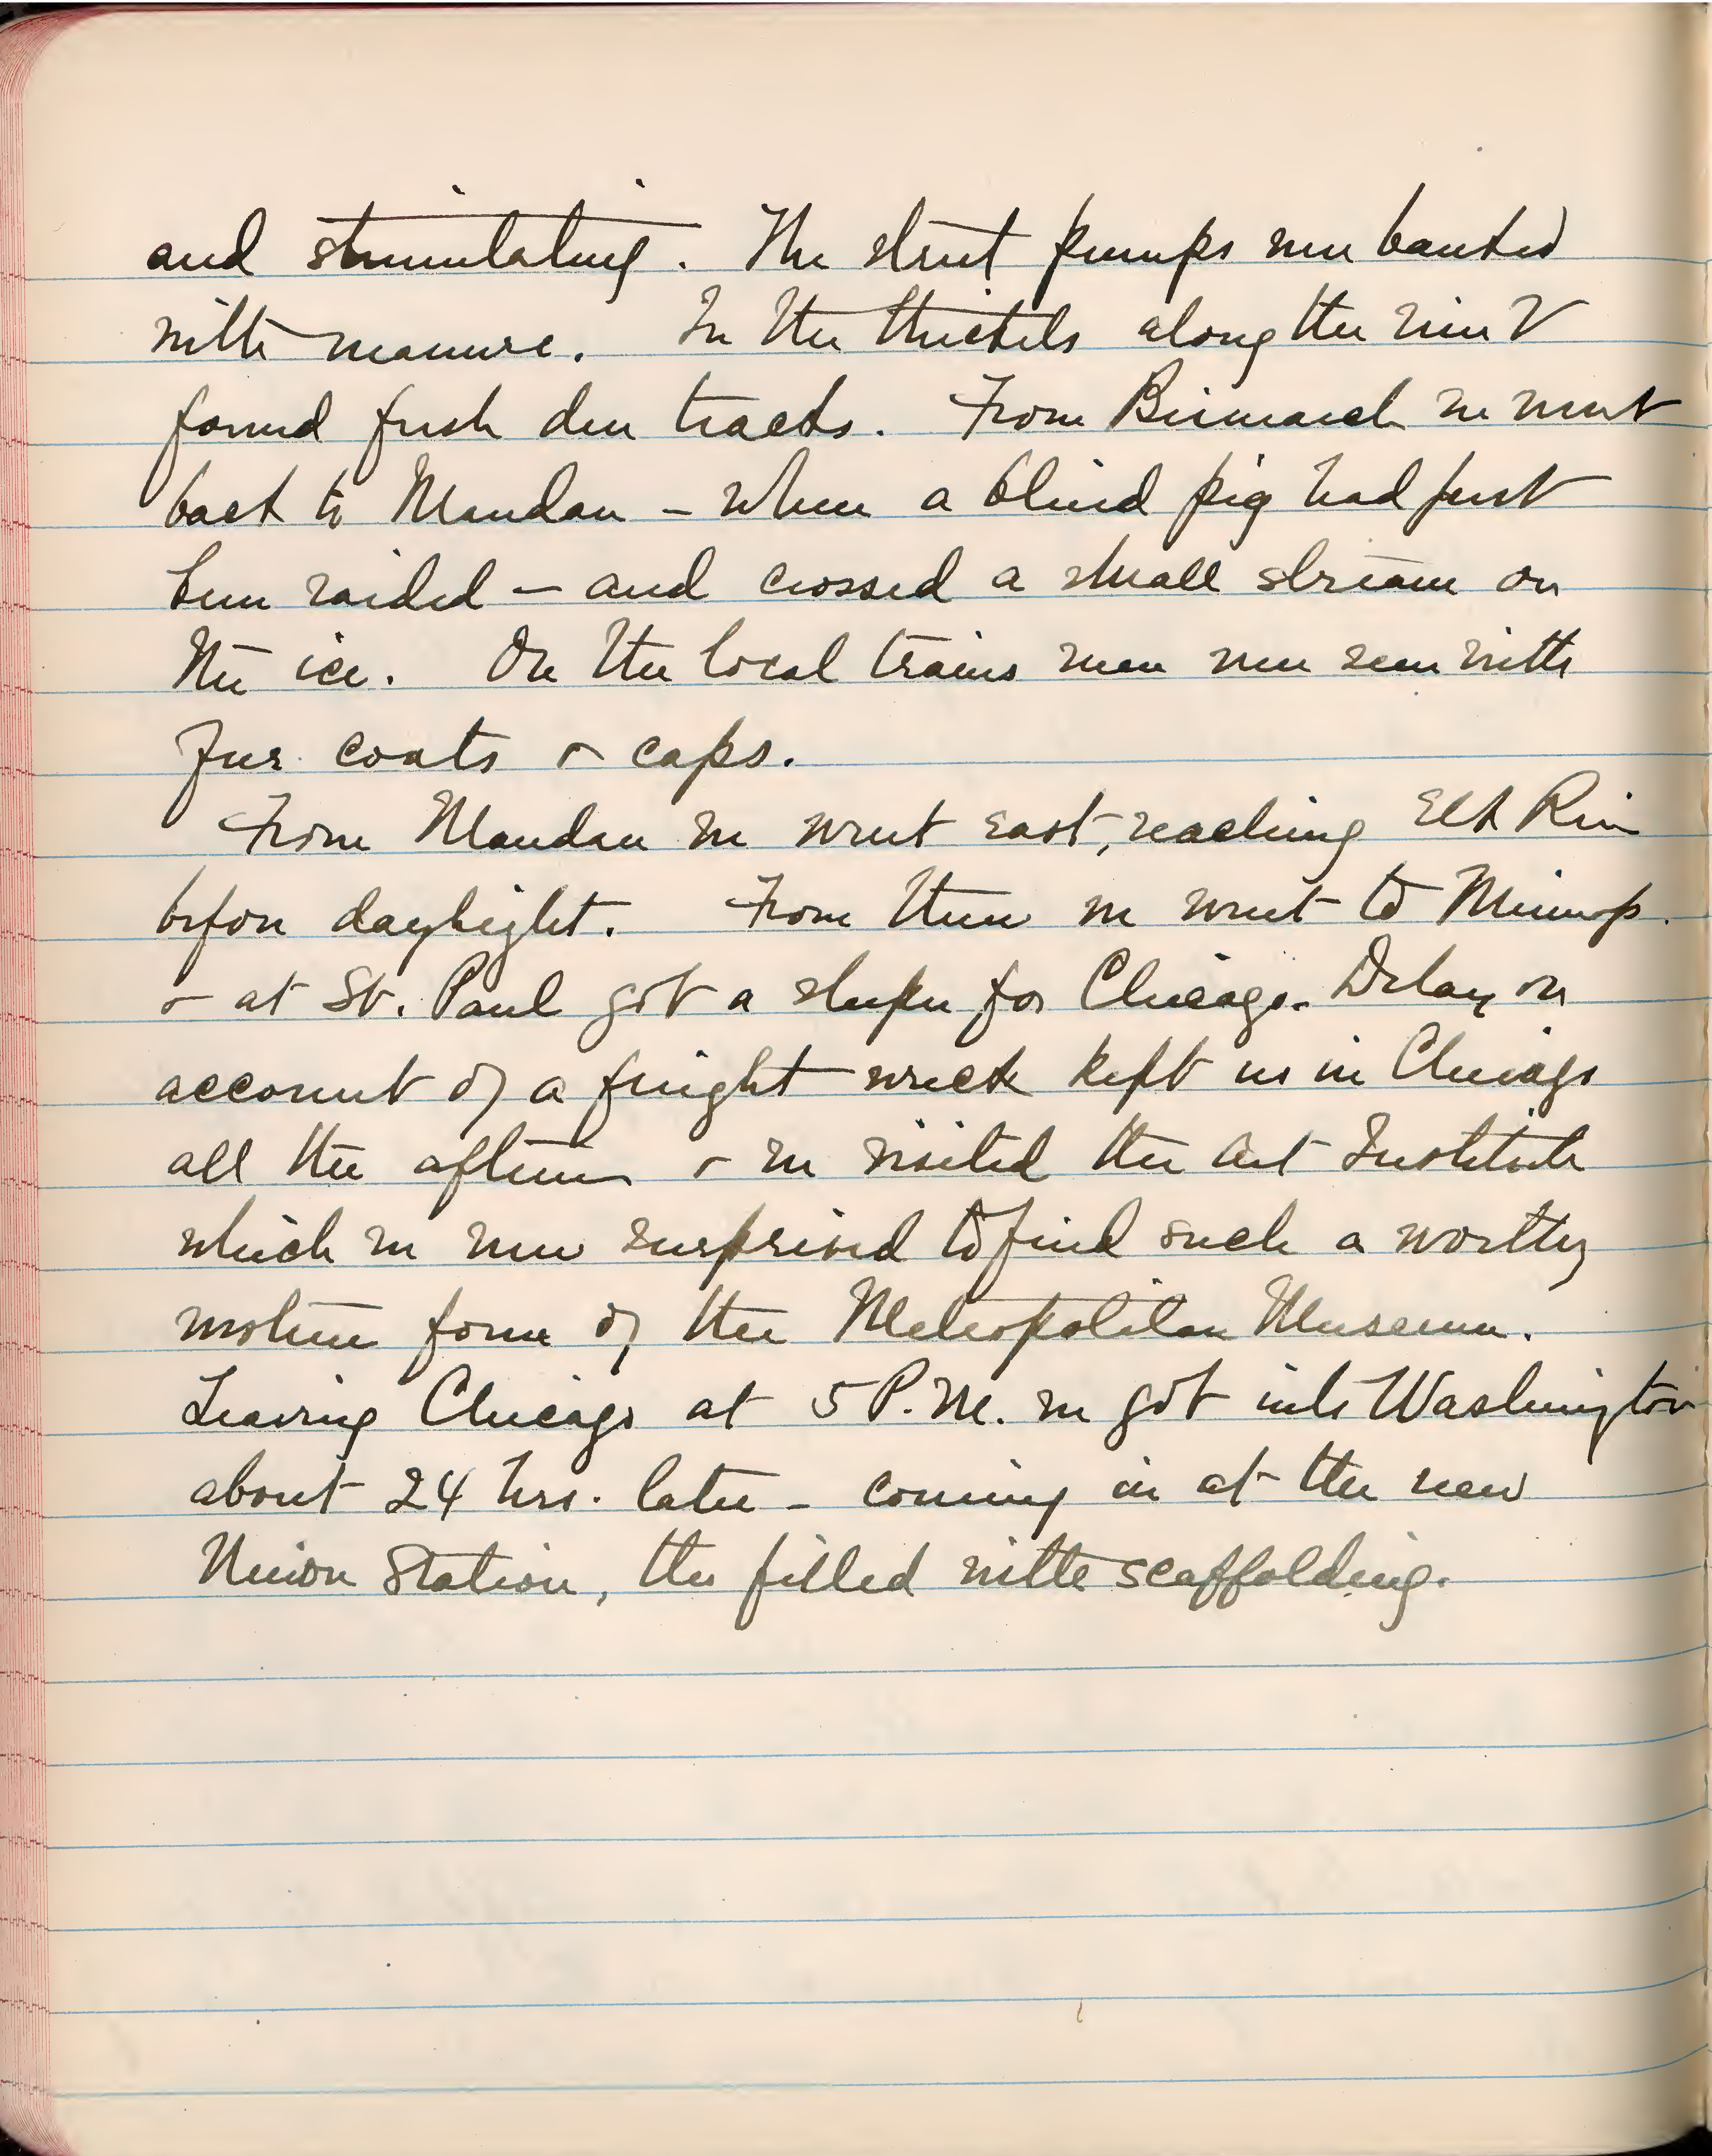 and stimulating. The street pumps were banked
with manure. In the thickets along the river V
found fresh deer tracks. From Bismarck we went
back to Mandan – where a blind pig had just
been raided – and crossed a small stream on
the ice. On the local trains men were seen with
fur coats & caps.
From Mandan we went east, reaching Elk River
before daylight. From there we went to Minneap.
& at St. Paul got a sleeper for Chicago. Delay on
account of a freight wreck kept us in Chicago
all the afternoon & we visited the Art Institute
which we were surprised to find such a worthy
western form of the Metropolitan Museum.
Leaving Chicago at 5 P.M. we got into Washington
about 24 hrs. later – coming in at the new
Union Station, then filled with scaffolding.